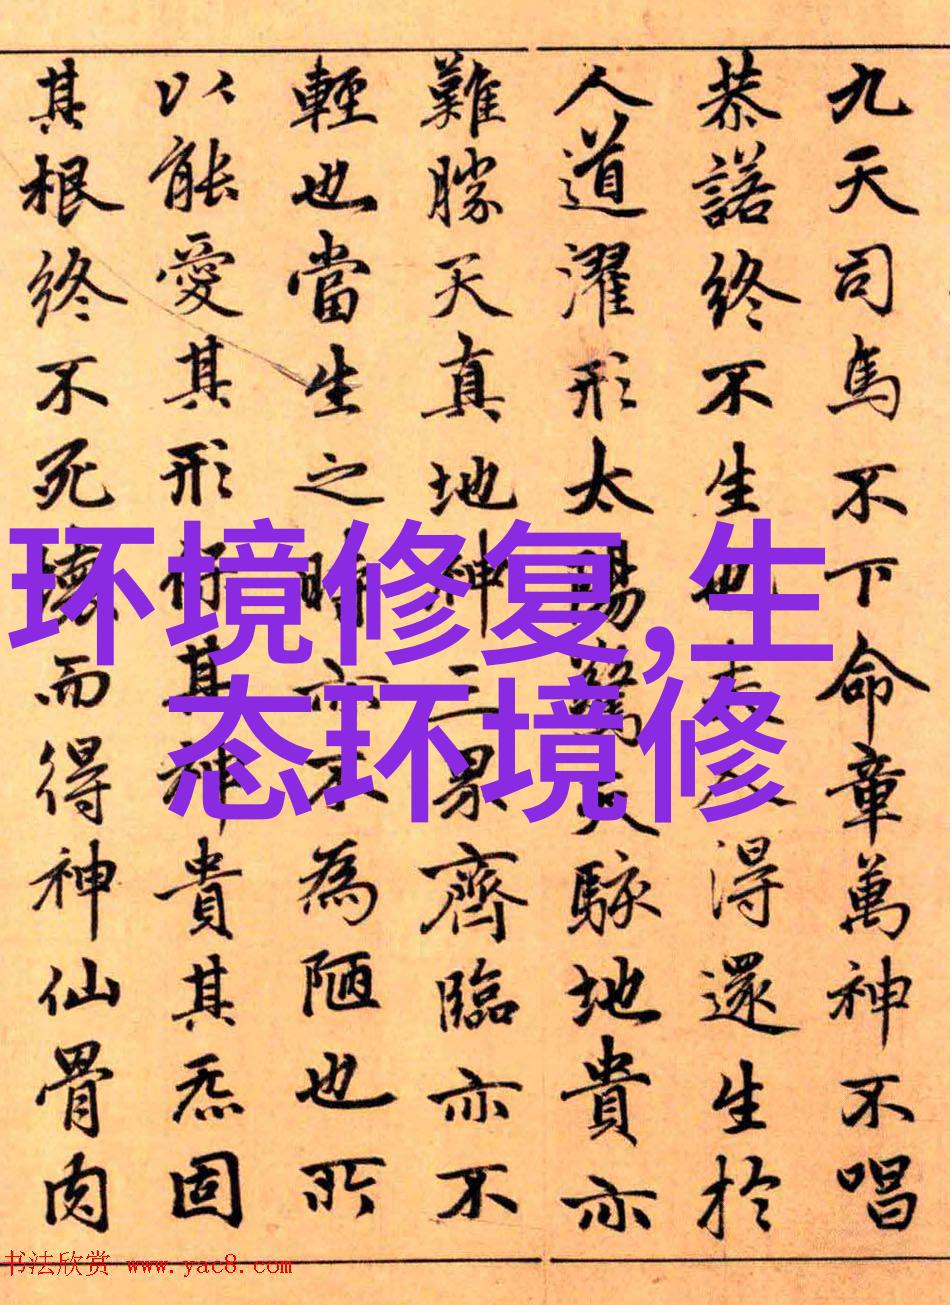 九天司馬不下命章萬神不唱
恭諾終不生也夫人得還生於
人道濯形太陽驚天駭地貴亦
難勝天真地神三界齊臨亦不
輕也當生之時亦不為陋也所
以能愛其形保其神貴其炁固
其根終不死壞而得神仙骨肉
环境修复,生
态环境修
书法欣赏 www.yac8.com